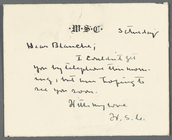 W·S·C·
Saturday
Dear Blanche;
I couldn't get
you by telephone this mor-
ning, but was hoping to
see you soon.
With my love